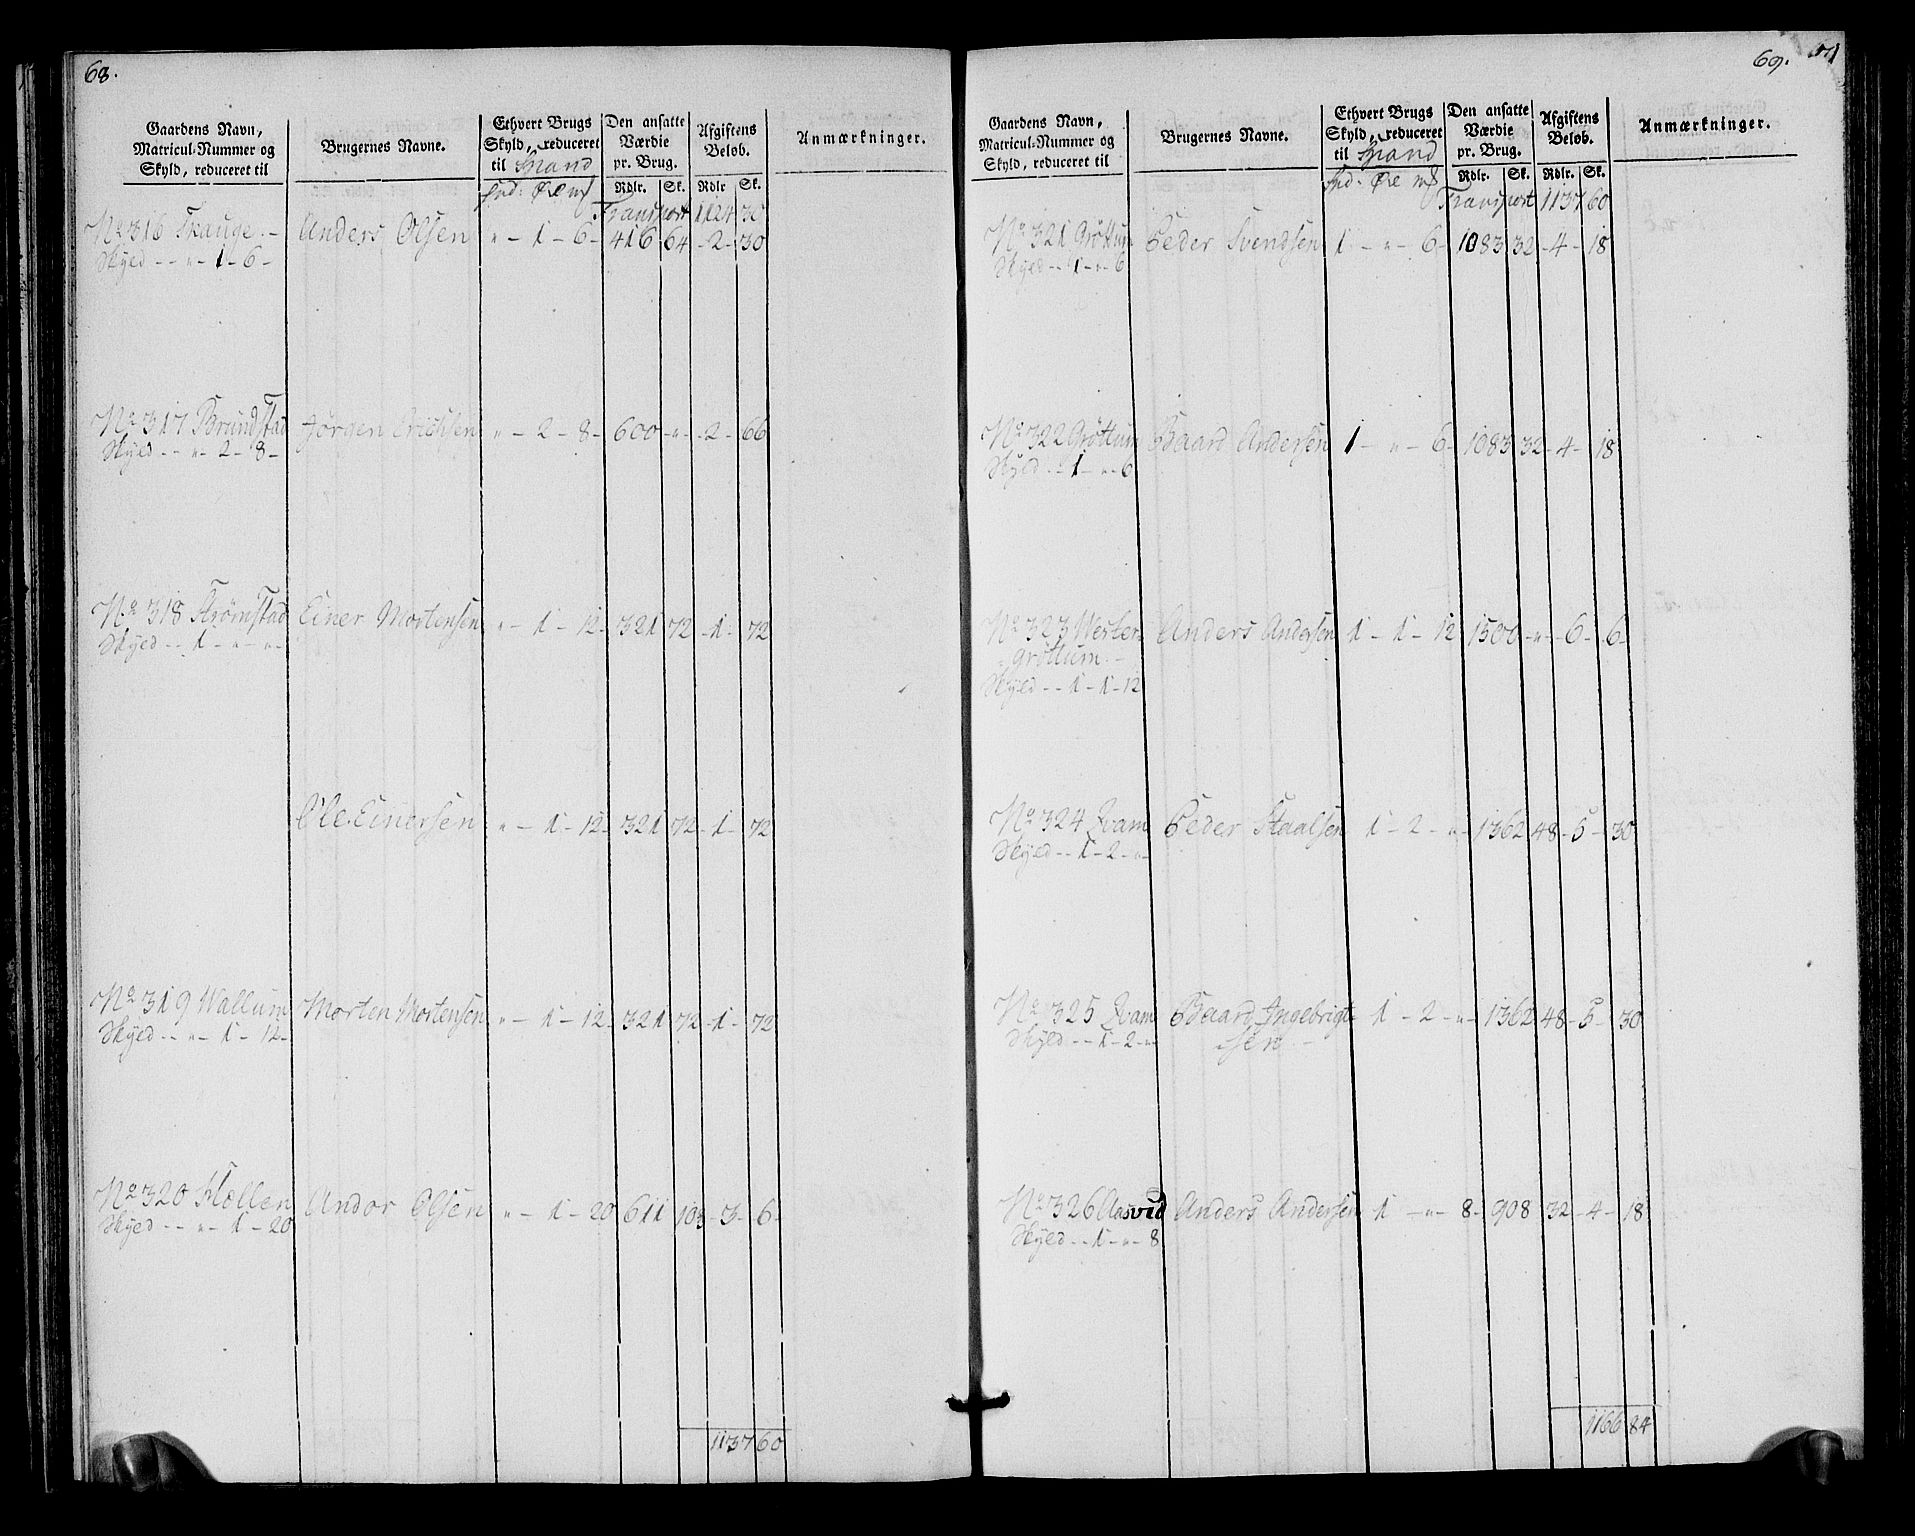 68.
Gaardens Navn, Matricul-Nummer og Skyld, reduceret til
Brugernes Navne.
Ethvert Brugs Skyld, reduceret til Spand
Den ansatte Værdie pr. Brug.
Afgiftens Beløb.
Anmærkninger.
Rdlr. Sk. Rdlr Sk.
Transport 1124 30
No 316 Skauge.- Anders Olsen " - 1 - 6 - 416 64 - 2 - 30
Skyld - - " - 1 - 6 -
No 317 Brundstad Jørgen Erichsen " - 2 - 8 - 600 - " - 2 - 66
Skyld - - " 2 - 8 -
No 318 Strømstad Einer Mortensen " - 1 - 12 - 321 72 - 1 - 72
Skyld - - 1 - " - " -
Ole Einersen " - 1 - 12 - 321 72 - 1 - 72
No 319 Wallum Morten Mortensen " - 1 - 12 - 321 72 - 1 - 72
Skyld - - " - 1 - 12 -
No 320 Andor Olsen " - 1 - 20 611 103 - 3 - 6 -
Skyld - - " - 1 - 20
1137 60
69. 71
Gaardens Navn, Matricul-Nummer og Skyld, reduceret til
Brugernes Navne.
Ethvert Brugs Skyld, reduceret til Spand
Den ansatte Værdie pr. Brug.
Afgiftens Beløb.
Anmærkninger.
Rdlr. Sk. Rdlr. Sk.
Transport 1137 60
No 321 Grøttum Peder Svendsen 1 - " - 6 - 1083 32 - 4 - 18
Skyld - - 1 - " - 6
No 322 Grøttum Baard Andersen 1 - " - 6 - 1083 32 - 4 - 18
Skyld - - 1 - " - 6
No 323 Wester Anders Andersen 1 - 1 - 12 1500 - " - 6 - 6 -
Grøttum.-
Skyld - - 1 - 1 - 12
No 324 Qvam Peder Staalsen 1 - 2 - " - 1362 48 - 5 - 30
Skyld - - 1 - 2 - " -
No 325 Qvam Baard Ingebrigt- 1 - 2 - " - 1362 48 - 5 - 30
Skyld - - 1 - 2 - " - sen
No 326 Aasvid Anders Andersen 1 - " - 8 - 908 32 - 4 - 18
Skyld - - 1 - " - 8
1166 84